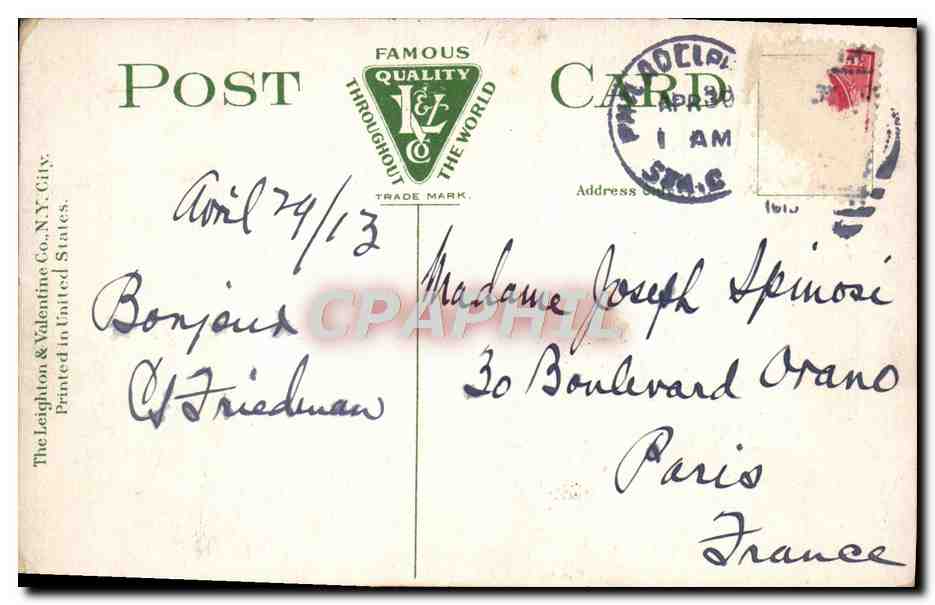 POST CARD
FAMOUS
QUALITY
L&V
Co
THROUGHOUT
THE WORLD
TRADE MARK.
PHILADELPH
APR 30
1 AM
STA. C
Address
The Leighton & Valentine Co., N.Y. City.
Printed in United States.
April 29/13
Bonjour
Friedman
Madame Joseph Spinosi
30 Boulevard Orano
Paris
France
CPAPHIL